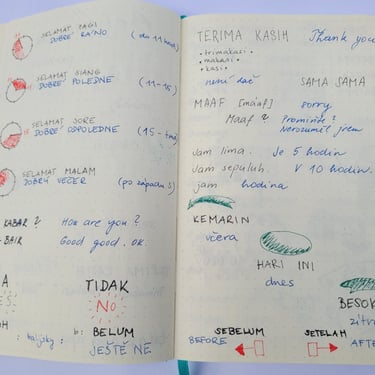 SELAMAT PAGI
DOBRÉ RÁNO
SELAMAT SIANG
DOBRÉ POLEDNE (11-15)
SELAMAT SORE
DOBRÉ ODPOLEDNE (15-tma)
SELAMAT MALAM
DOBRÝ VEČER (po západu S)
KABAR? How are you?
BAIK Good good. ok.
TIDAK
NO
b: BELUM
JEŠTĚ NE
TERIMA KASIH Thank you
• trimakasi •
• makasi •
• kasi •
není dač SAMA SAMA
MAAF [máaf] sorry
Maaf? Promiňte?
Nerozuměl jsem
Jam lima. Je 5 hodin
Jam sepuluh. V 10 hodin.
jam hodina
KEMARIN
včera
HARI INI
dnes
BESOK
zítra
SEBELUM SETELAH
BEFORE AFTE